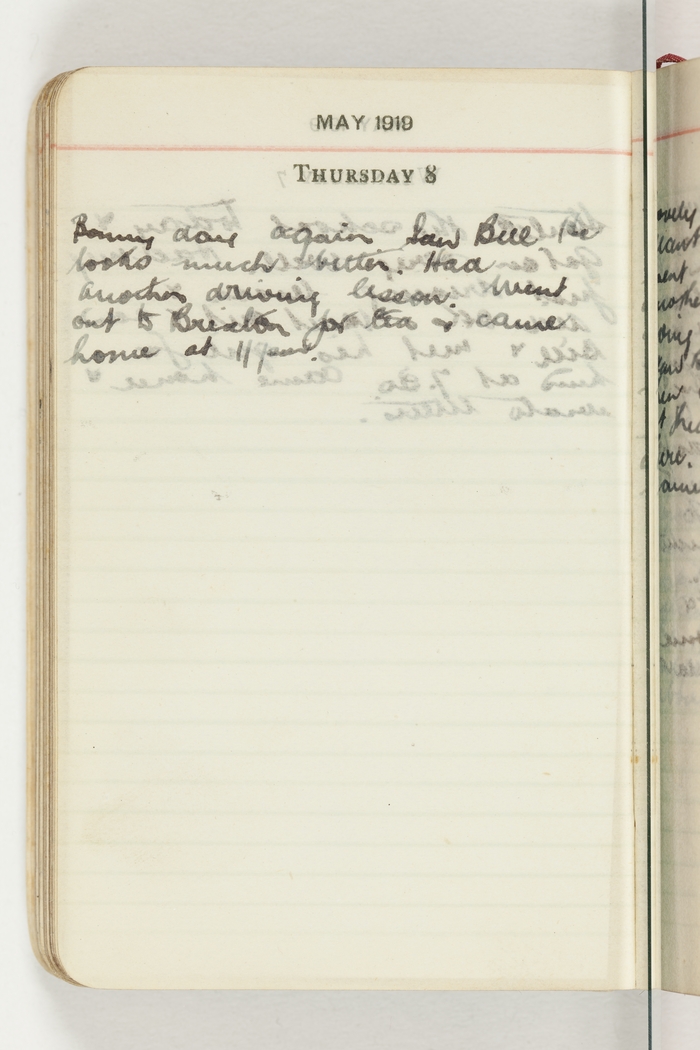 MAY 1919
THURSDAY 8
Bonny day again Saw Bill He
looks much better. Had
another driving lesson. Went
out to Brixton for tea & came
home at 11 pm.